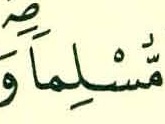 مُّسْلِمًا ۖ وَ